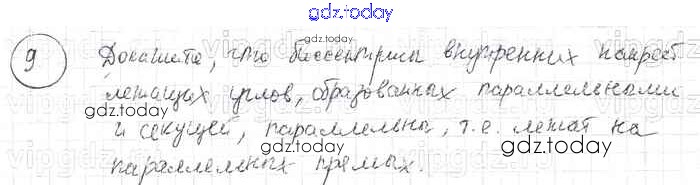 gdz.today
9 Докажите, что биссектрисы внутренних накрест
лежащих углов, образованных параллельными
и секущей, параллельны, т.е. лежат на
параллельных прямых.
gdz.today
gdz.today
gdz.today
gdz.today